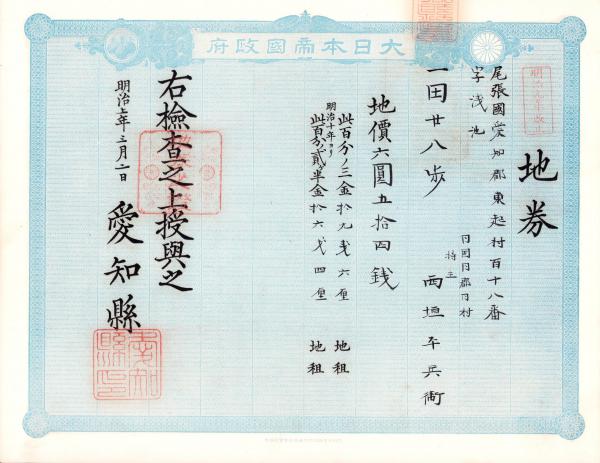 大日本帝國政府
地券
尾張國愛知郡東起村百十八番
字浅池
同國同郡同村
一田廿八歩
持主
西垣平兵衛
地價六圓五拾四銭
此百分ノ三金拾九銭六厘 地租
明治十年ヨリ
此百分ノ貳半金拾六銭四厘 地租
右檢査之上授與之
明治十年三月一日
愛知縣